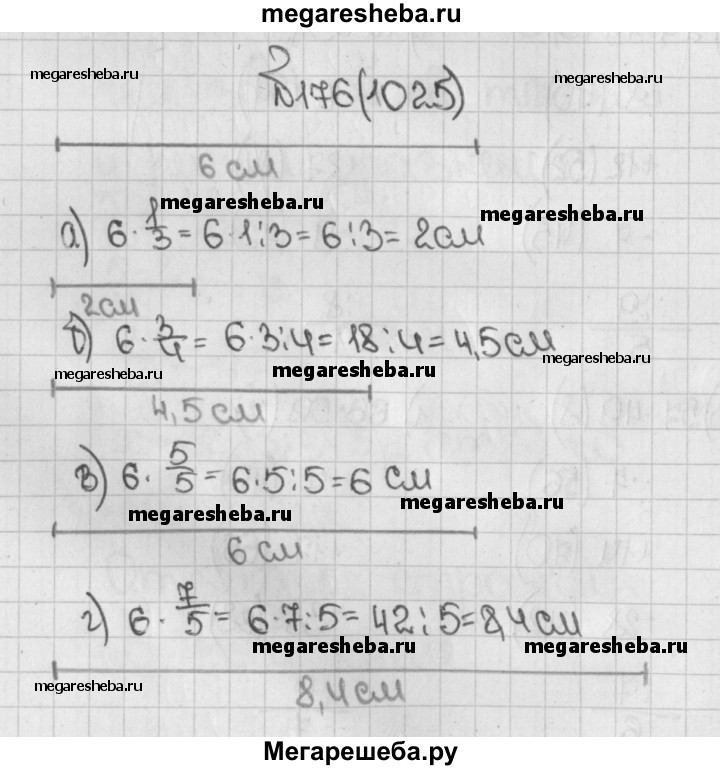 megaresheba.ru
megaresheba.ru
megaresheba.ru
№176(1025)
6 см
megaresheba.ru
megaresheba.ru
а) 6 · 1/3 = 6 · 1 : 3 = 6 : 3 = 2см
2см
б) 6 · 3/4 = 6 · 3 : 4 = 18 : 4 = 4,5 см
megaresheba.ru
megaresheba.ru
megaresheba.ru
4,5 см
в) 6 · 5/5 = 6 · 5 : 5 = 6 см
megaresheba.ru
megaresheba.ru
6 см
г) 6 · 7/5 = 6 · 7 : 5 = 42 : 5 = 8,4 см
megaresheba.ru
megaresheba.ru
megaresheba.ru
8,4 см
Мегарешеба.ру